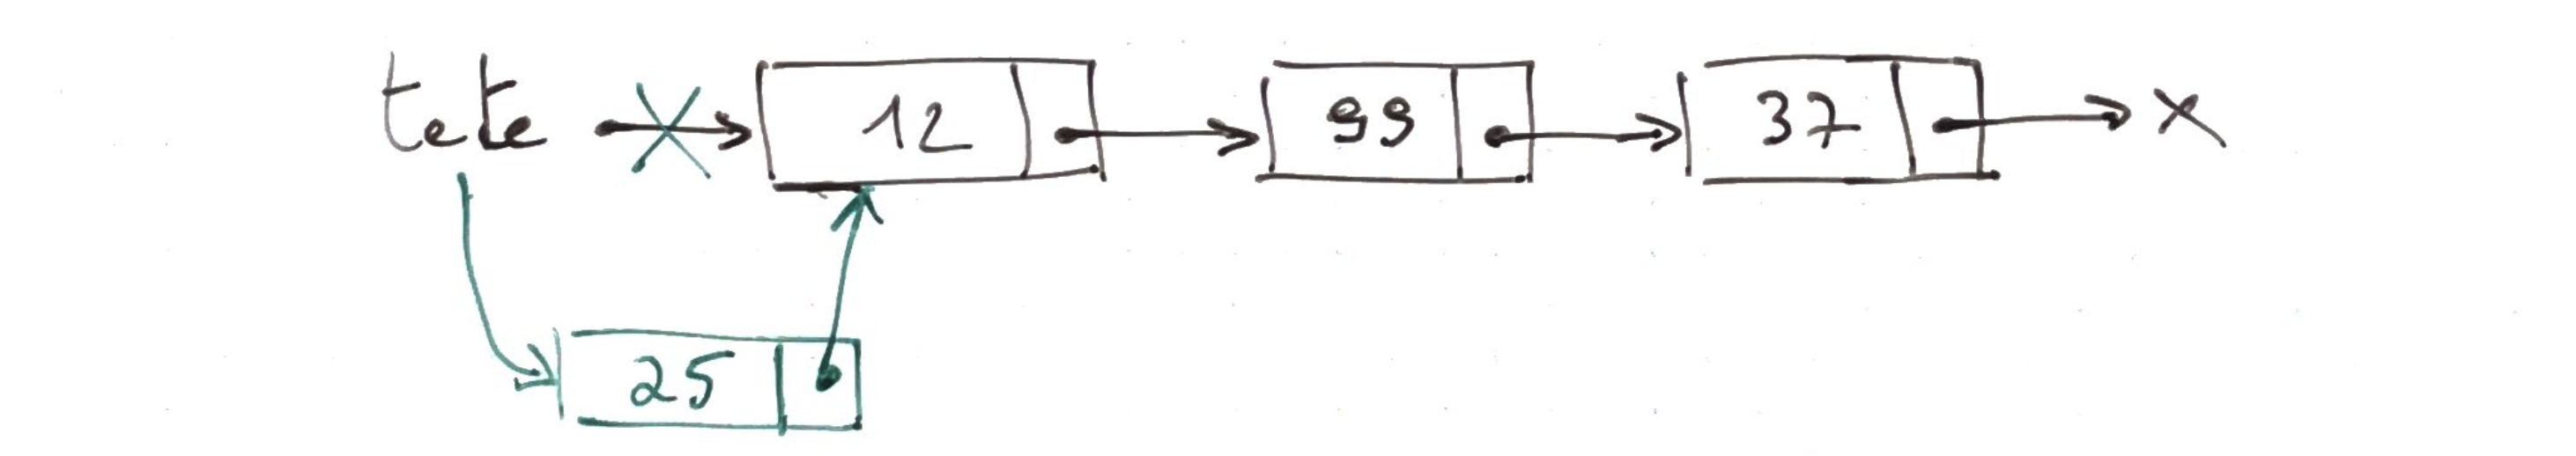 tete 12 99 37 X
25